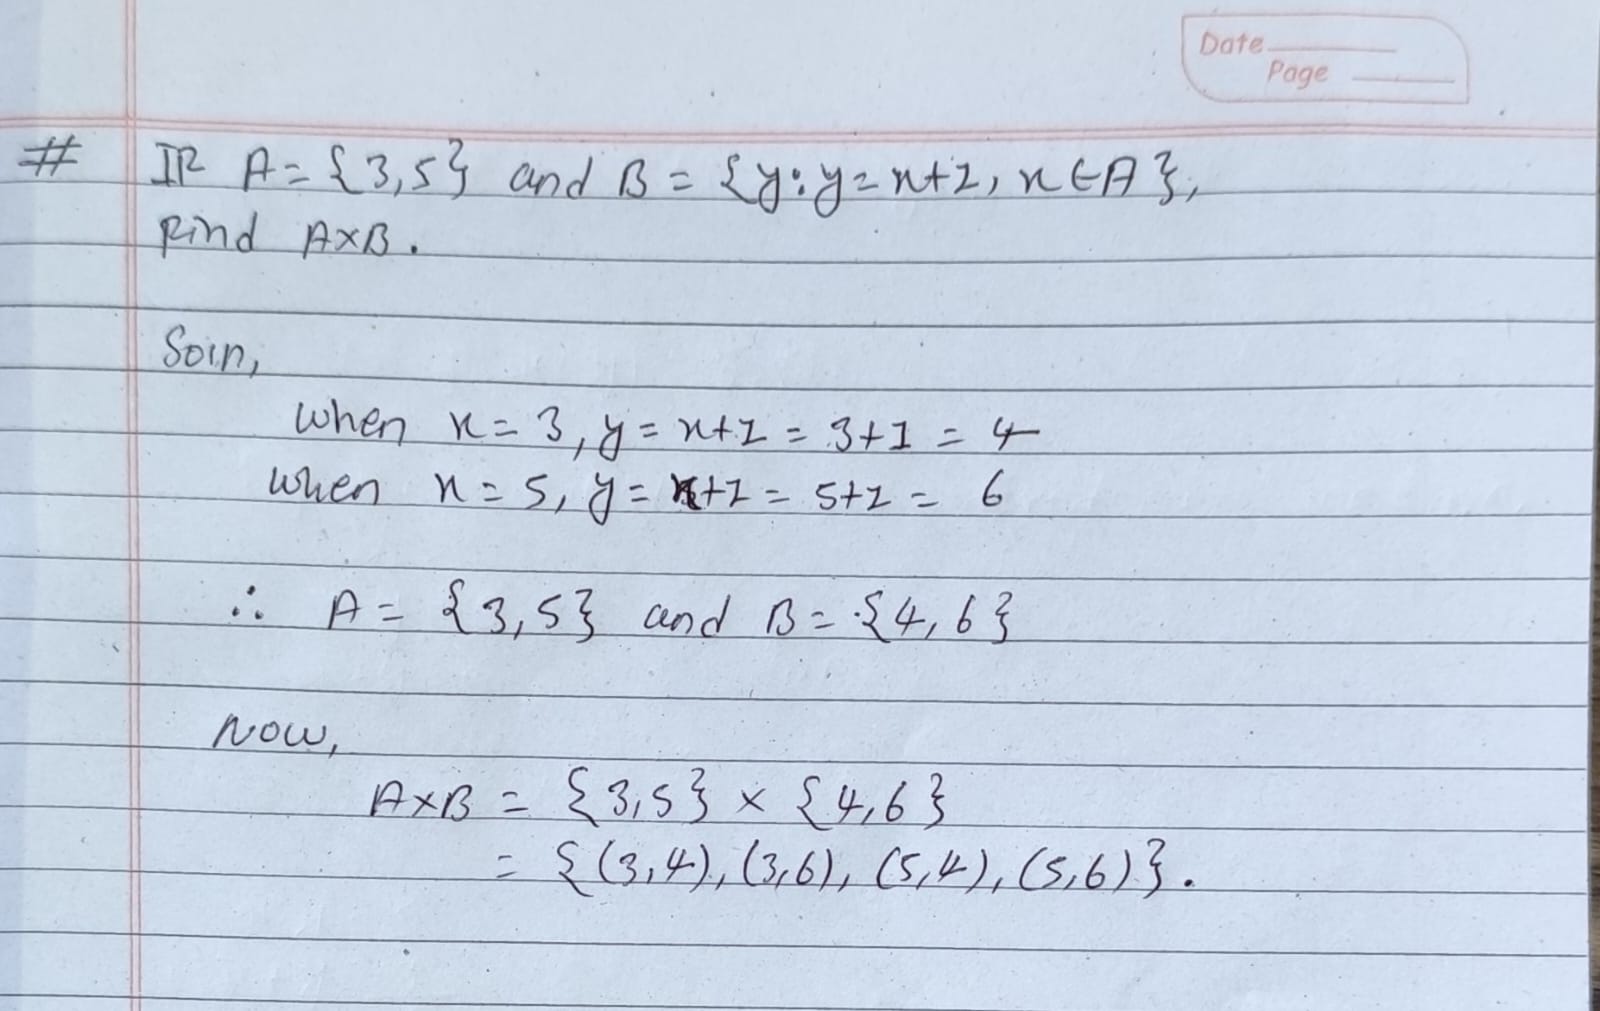 Date
Page
# If A = {3,5} and B = {y:y=x+1, x∈A},
find A×B.
Soln,
when x = 3, y = x+1 = 3+1 = 4
when x = 5, y = x+1 = 5+1 = 6
∴ A = {3,5} and B = {4,6}
Now,
A×B = {3,5} × {4,6}
= {(3,4), (3,6), (5,4), (5,6)}.